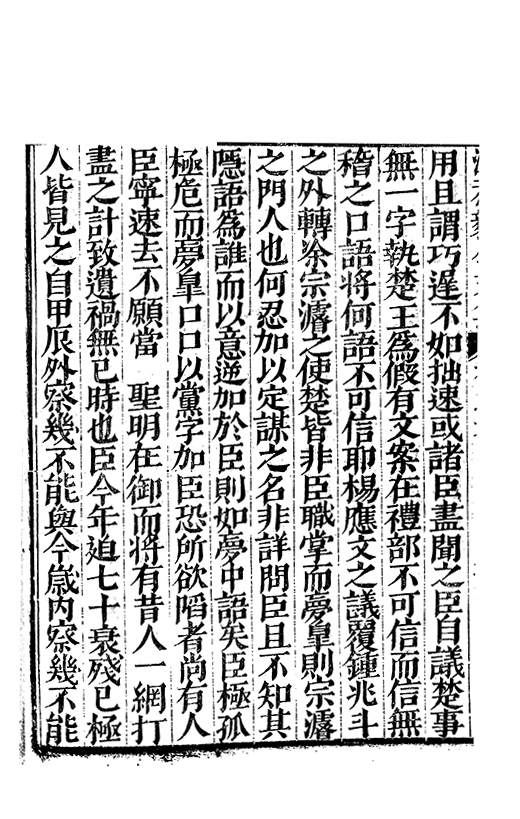 用且謂巧遲不如拙速或諸臣盡聞之臣自議楚事
無一字執楚王爲假有文案在禮部不可信而信無
稽之口語將何語不可信耶楊應文之議覆鍾兆斗
之外轉余宗濬之使楚皆非臣職掌而夢臯則宗濬
之門人也何忍加以定謀之名非詳問臣且不知其
隱語爲誰而以意逆加於臣則如夢中語矣臣極孤
極危而夢臯口口以黨字加臣恐所欲陷者尚有人
臣寧速去不願當 聖明在御而將有昔人一網打
盡之計致遺禍無已時也臣今年廹七十衰殘已極
人皆見之自甲辰外察幾不能與今歲内察幾不能